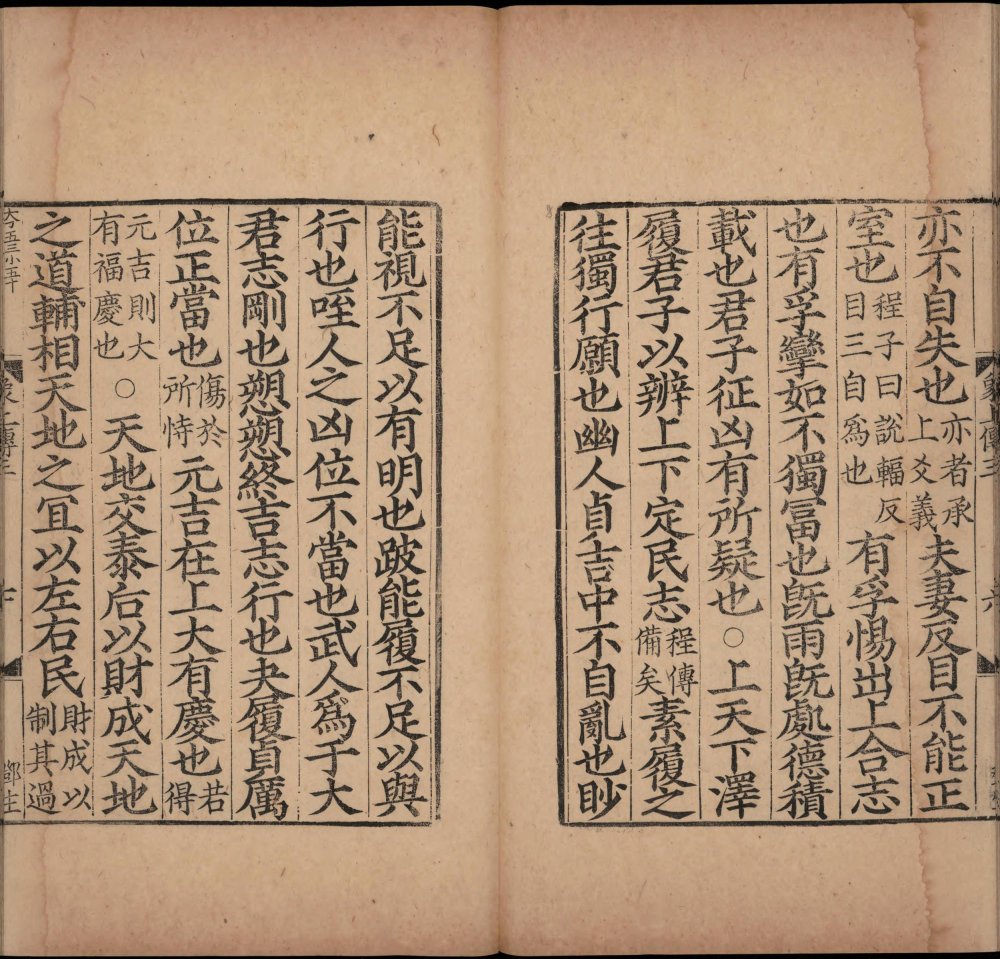 亦不自失也亦者承上爻義夫妻反目不能正
室也程子曰說輻反目三自為也有孚惕出上合志
也有孚攣如不獨冨也旣雨旣處德積
載也君子征凶有所疑也○上天下澤
履君子以辨上下定民志程傳備矣素履之
往獨行願也幽人貞吉中不自亂也眇
能視不足以有明也跛能履不足以與
行也咥人之凶位不當也武人爲于大
君志剛也愬愬終吉志行也夬履貞厲
位正當也傷於所恃元吉在上大有慶也若得
元吉則大有福慶也○天地交泰后以財成天地
之道輔相天地之冝以左右民財成以制其過